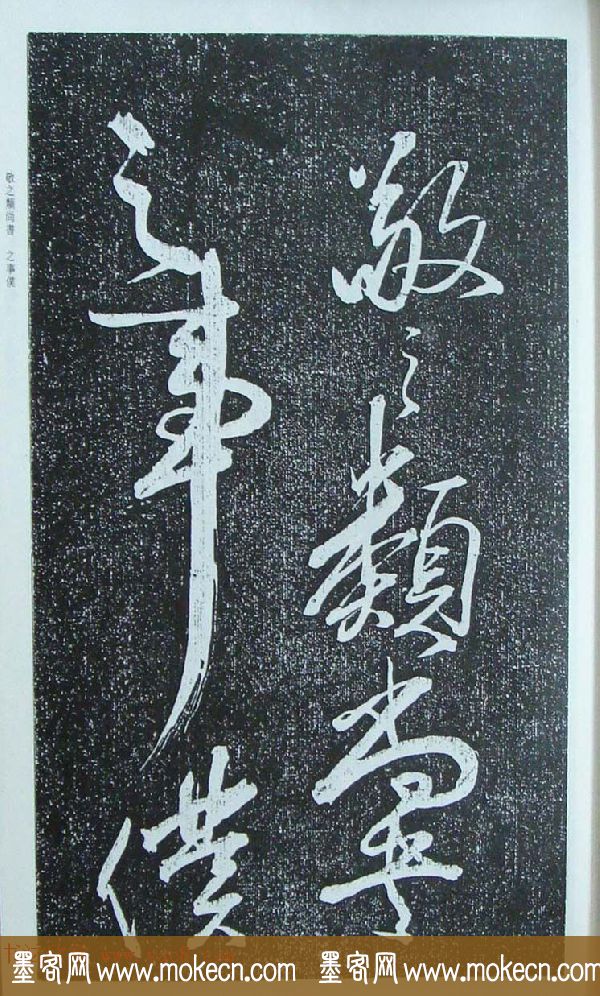 敬之類尚書
之事僕
敬之類尚書 之事僕
墨客网 www.mokecn.com 墨客网 www.mokecn.com